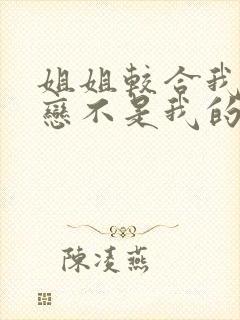 姐姐較合我
戀不是我的
陳凌燕